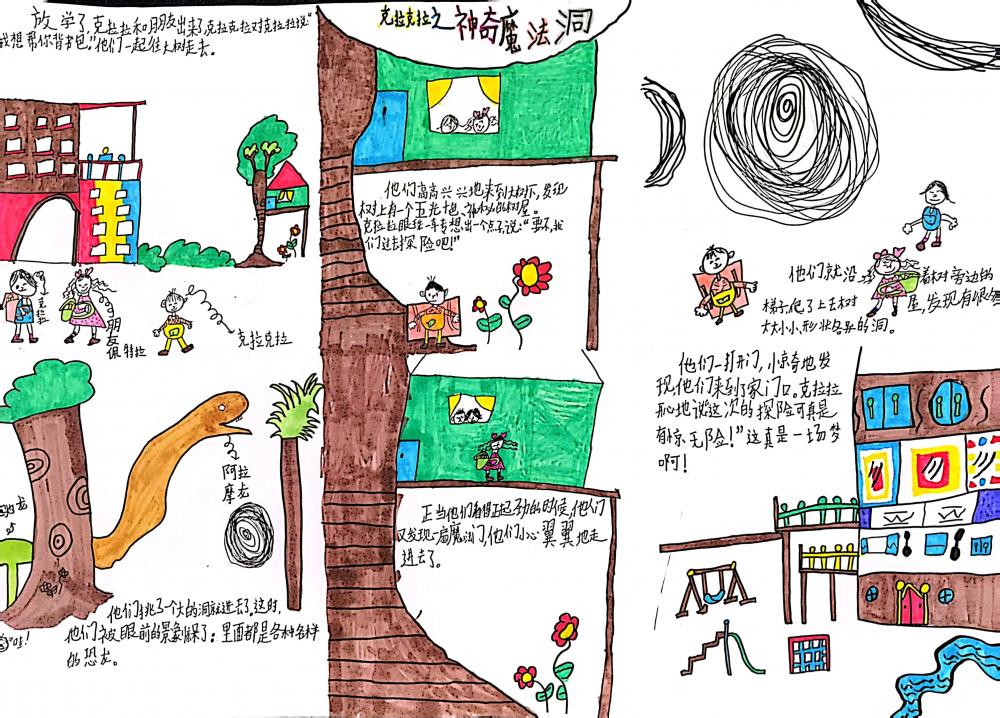 克拉克拉之神奇魔法洞
放学了,克拉拉和朋友出来了,克拉克拉对克拉拉说"
我想帮你背书包."他们一起往大树走去。
克拉拉
朋友佩特拉
克拉克拉
他们高高兴兴地来到大树下,发现
树上有一个五光十色、神秘的树屋。
克拉拉眼珠一转想出一个点子说:"要不,我
们过去探险吧!"
他们就沿着树旁边的
梯子爬了上去树屋,发现有很多
大大小小形状各异的洞。
他们挑了一个大的洞就进去了,这时,
他们被眼前的景象惊呆了:里面都是各种各样
的恐龙。
阿拉
摩龙
哇!
正当他们看得正起劲的时候,他们
又发现一扇魔法门,他们小心翼翼地走
进去了。
他们一打开门,惊奇地发
现,他们来到了家门口。克拉拉
开心地说"这次的探险可真是
有惊无险!"这真是一场梦
啊!